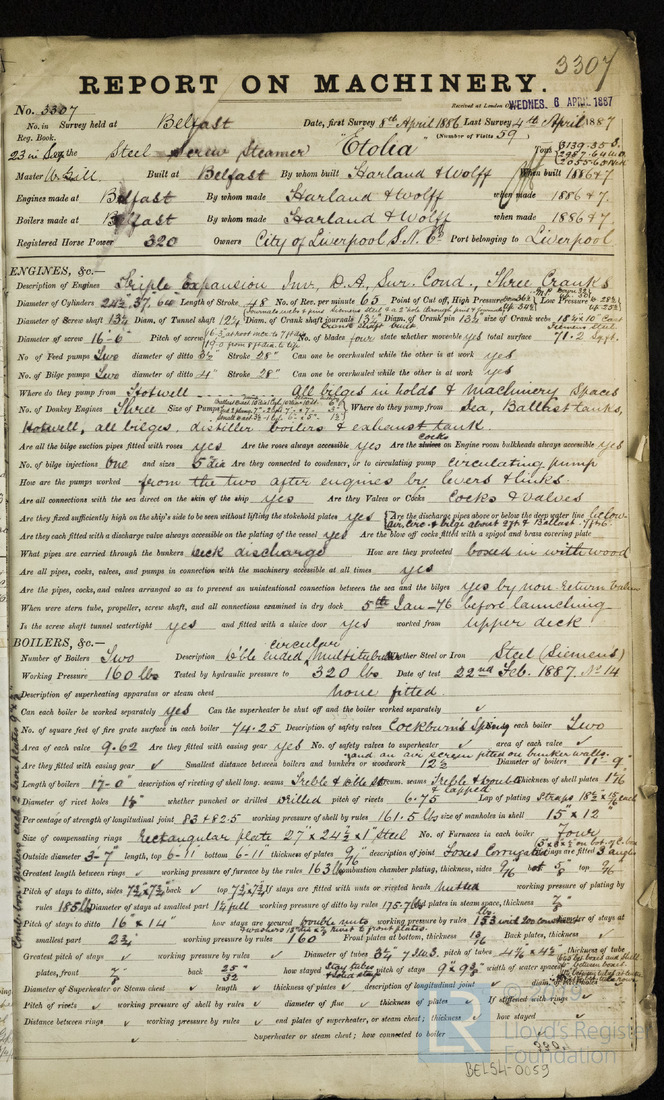 3307
REPORT ON MACHINERY.
No. 3307 Received at London WEDNES. 6 APRIL 1887
No. in Survey held at Belfast Date, first Survey 8th April 1886 Last Survey 4th April 1887
Reg. Book. (Number of Visits 59)
23 in Sup the Steel Screw Steamer "Etolia" Tons
Master W. Gill Built at Belfast By whom built Harland & Wolff When built 1886 & 7
Engines made at Belfast By whom made Harland & Wolff when made 1886 & 7.
Boilers made at Belfast By whom made Harland & Wolff when made 1886 & 7.
Registered Horse Power 320 Owners City of Liverpool S.N. Co Port belonging to Liverpool
ENGINES, &c.—
Description of Engines Triple Expansion Inv, D.A, Sur. Cond., Three Cranks
Diameter of Cylinders 24½" 37" 64" Length of Stroke 48 No. of Rev. per minute 65 Point of Cut off, High Pressure Low Pressure
Diameter of Screw shaft 13¼ Diam. of Tunnel shaft 12¼ Diam. of Crank shaft journals 13¼" Diam. of Crank pin 13½" size of Crank webs
Diameter of screw 16'-6" Pitch of screw No. of blades four state whether moveable yes total surface 71.2 Sq ft.
No. of Feed pumps Two diameter of ditto Stroke 28" Can one be overhauled while the other is at work yes
No. of Bilge pumps Two diameter of ditto 4" Stroke 28" Can one be overhauled while the other is at work yes
Where do they pump from Hotwell — All bilges in holds & Machinery Spaces
No. of Donkey Engines Three Size of Pumps Where do they pump from Sea, Ballast tanks,
Hotwell, all bilges, distiller boilers & exhaust tank.
Are all the bilge suction pipes fitted with roses yes Are the roses always accessible yes Are the cocks on Engine room bulkheads always accessible yes
No. of bilge injections One and sizes 5" dia Are they connected to condenser, or to circulating pump circulating pump
How are the pumps worked from the two after engines by levers & links.
Are all connections with the sea direct on the skin of the ship yes Are they Valves or Cocks Cocks & Valves
Are they fixed sufficiently high on the ship's side to be seen without lifting the stokehold plates yes Are the discharge pipes above or below the deep water line below
Are they each fitted with a discharge valve always accessible on the plating of the vessel yes Are the blow off cocks fitted with a spigot and brass covering plate
What pipes are carried through the bunkers deck discharge How are they protected boxed in with wood
Are all pipes, cocks, valves, and pumps in connection with the machinery accessible at all times yes
Are the pipes, cocks, and valves arranged so as to prevent an unintentional connection between the sea and the bilges yes by non-return valves
When were stern tube, propeller, screw shaft, and all connections examined in dry dock 5th Jan — before launching
Is the screw shaft tunnel watertight yes and fitted with a sluice door yes worked from upper deck
BOILERS, &c.—
Number of Boilers Two Description D'ble ended, circular Multitub. Whether Steel or Iron Steel (Siemens)
Working Pressure 160 lbs Tested by hydraulic pressure to 320 lbs Date of test 22nd Feb. 1887. No 14
Description of superheating apparatus or steam chest none fitted.
Can each boiler be worked separately yes Can the superheater be shut off and the boiler worked separately ✓
No. of square feet of fire grate surface in each boiler 74.25 Description of safety valves Cockburn's Spring each boiler Two
Area of each valve 9.62 Are they fitted with easing gear yes No. of safety valves to superheater ✓ area of each valve ✓
and an air screen fitted on bunker walls.
Are they fitted with easing gear ✓ Smallest distance between boilers and bunkers or woodwork 12½ Diameter of boilers 11'-9"
Length of boilers 17'-0" description of riveting of shell long. seams Treble & d'ble st circum. seams Treble & double & lapped thickness of shell plates
Diameter of rivet holes whether punched or drilled Drilled pitch of rivets 6.75 Lap of plating Straps
Percentage of strength of longitudinal joint 83 & 82.5 working pressure of shell by rules 161.5 lbs size of manholes in shell 15" x 12"
Size of compensating rings Rectangular plate 27" x 24½ x 1" Steel No. of Furnaces in each boiler Four
Outside diameter 3'-7" length, top 6'-11 bottom 6'-11 thickness of plates description of joint Foxes Corrugated
Greatest length between rings ✓ working pressure of furnace by the rules 163 lbs combustion chamber plating, thickness, sides back top
Pitch of stays to ditto, sides back ✓ top If stays are fitted with nuts or riveted heads Nutted working pressure of plating by
rules 185 lbs Diameter of stays at smallest part 1¼ full working pressure of ditto by rules plates in steam space, thickness
Pitch of stays to ditto 16" x 14" how stays are secured double nuts working pressure by rules diameter of stays at
smallest part 2¾ working pressure by rules 160 Front plates at bottom, thickness Back plates, thickness
Greatest pitch of stays ✓ working pressure by rules ✓ Diameter of tubes 3¼" pitch of tubes thickness of tube
plates, front back how stayed Stay tubes pitch of stays width of water spaces
Diameter of Superheater or Steam chest ✓ length ✓ thickness of plates ✓ description of longitudinal joint ✓
Pitch of rivets ✓ working pressure of shell by rules ✓ diameter of flue ✓ thickness of plates ✓ If stiffened with rings
Distance between rings ✓ working pressure by rules ✓ end plates of superheater, or steam chest; thickness ✓ how stayed ✓
Superheater or steam chest; how connected to boiler
LR
Lloyd's Register
Foundation
BEL54-0059